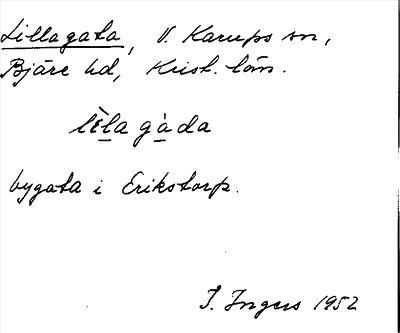 Lillagata, V. Karups sn,
Bjäre hd, Krist. län.
lìla gàda
bygata i Erikstorp.
I. Ingers 1952